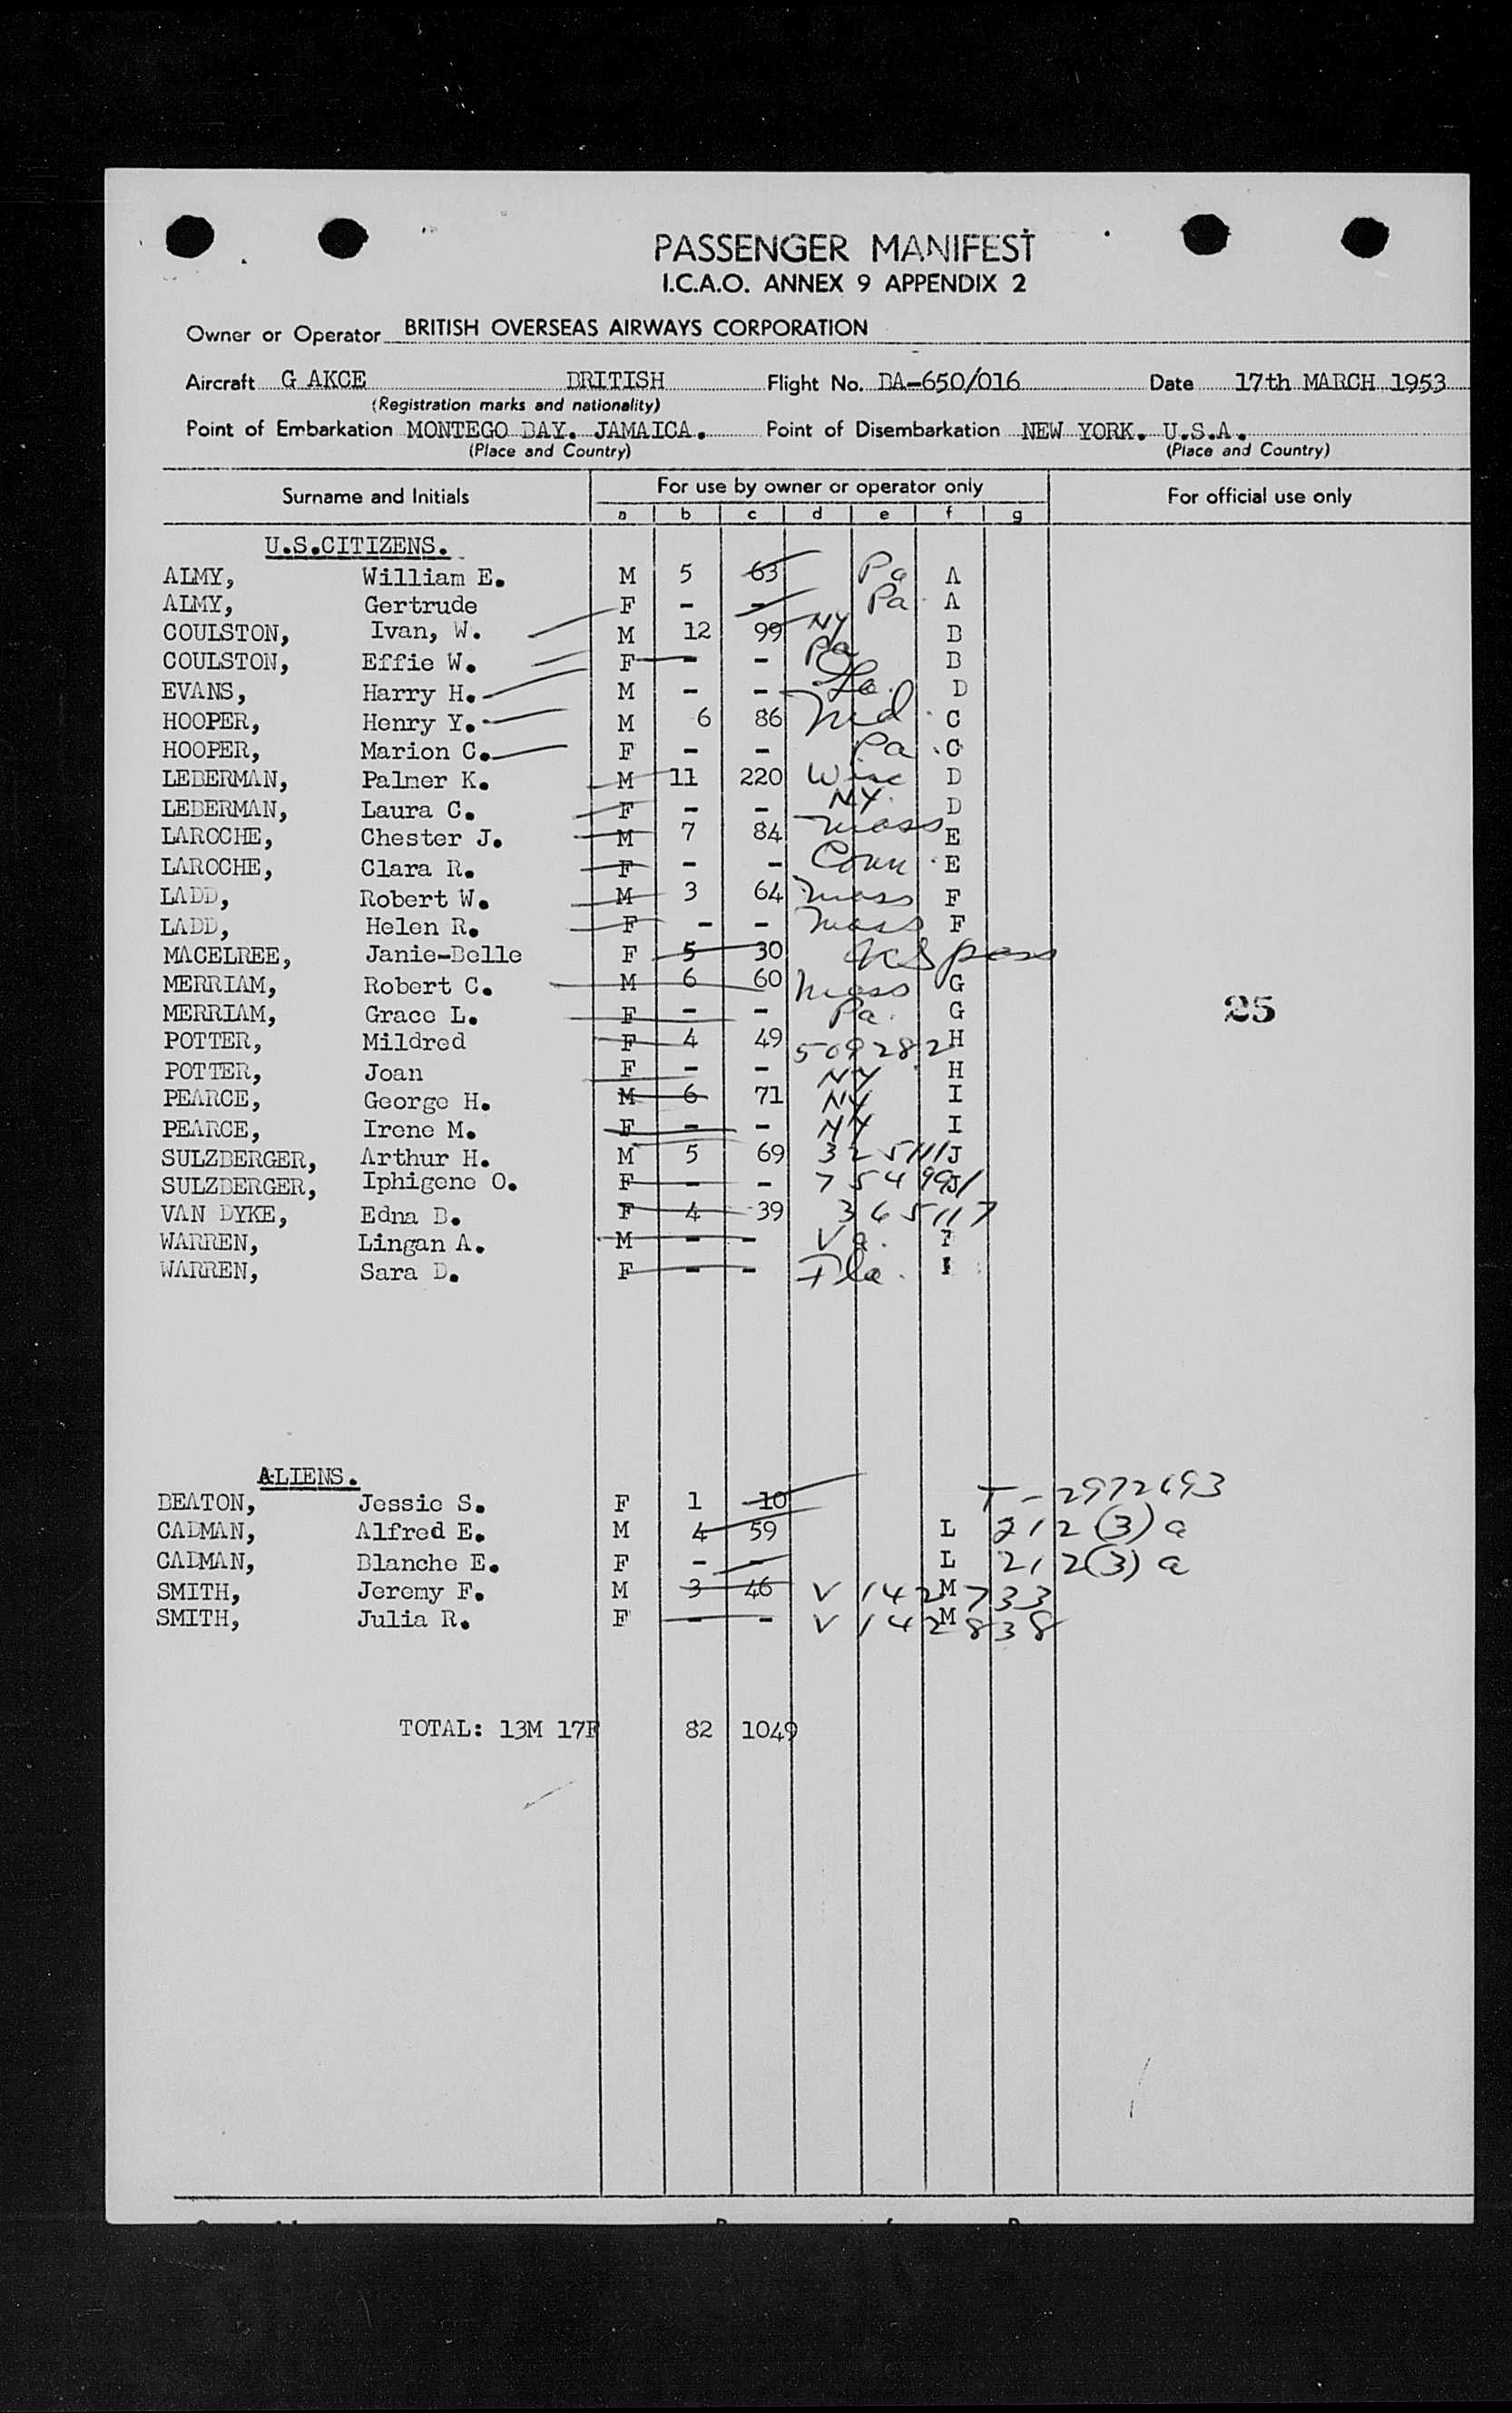 PASSENGER MANIFEST
I.C.A.O. ANNEX 9 APPENDIX 2
Owner or Operator BRITISH OVERSEAS AIRWAYS CORPORATION
Aircraft G AKCE BRITISH Flight No. BA-650/016 Date 17th MARCH 1953
(Registration marks and nationality)
Point of Embarkation MONTEGO BAY. JAMAICA. Point of Disembarkation NEW YORK. U.S.A.
(Place and Country) (Place and Country)
Surname and Initials For use by owner or operator only For official use only
a b c d e f g
U.S.CITIZENS.
ALMY, William E. M 5 63 Pa A
ALMY, Gertrude F - - Pa A
COULSTON, Ivan, W. M 12 99 NY B
COULSTON, Effie W. F - - Pa B
EVANS, Harry H. M - - D
HOOPER, Henry Y. M 6 86 Md C
HOOPER, Marion C. F - - Pa C
LEBERMAN, Palmer K. M 11 220 Wisc D
LEBERMAN, Laura C. F - - NY. D
LAROCHE, Chester J. M 7 84 Mass E
LAROCHE, Clara R. F - - Conn E
LADD, Robert W. M 3 64 Mass F
LADD, Helen R. F - - Mass F
MACELREE, Janie-Belle F 5 30 US pass
MERRIAM, Robert C. M 6 60 Mass G
MERRIAM, Grace L. F - - Pa. G
POTTER, Mildred F 4 49 509282 H
POTTER, Joan F - - NY H
PEARCE, George H. M 6 71 NY I
PEARCE, Irene M. F - - NY I
SULZBERGER, Arthur H. M 5 69 325111 J
SULZBERGER, Iphigene O. F - - 754991 J
VAN DYKE, Edna B. F 4 39 365117
WARREN, Lingan A. M - - Va. F
WARREN, Sara D. F - - Fla.
25
ALIENS.
BEATON, Jessie S. F 1 10 T-2972693
CADMAN, Alfred E. M 4 59 L 212(3)a
CADMAN, Blanche E. F - - L 212(3)a
SMITH, Jeremy F. M 3 46 V 142733 M
SMITH, Julia R. F - - V 142838 M
TOTAL: 13M 17F 82 1049